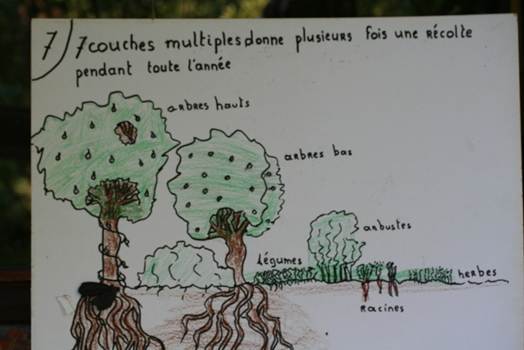 7) 7 couches multiples donne plusieurs fois une Récolte
pendant toute l'année
arbres hauts
arbres bas
arbustes
légumes
herbes
Racines